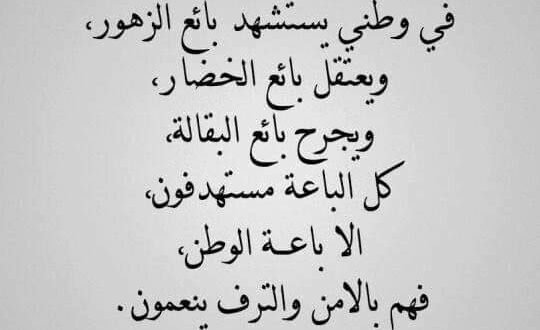 في وطني يستشهد بائع الزهور،
ويعتقل بائع الخضار،
ويجرح بائع البقالة،
كل الباعة مستهدفون،
الا باعة الوطن،
فهم بالامن والترف ينعمون.